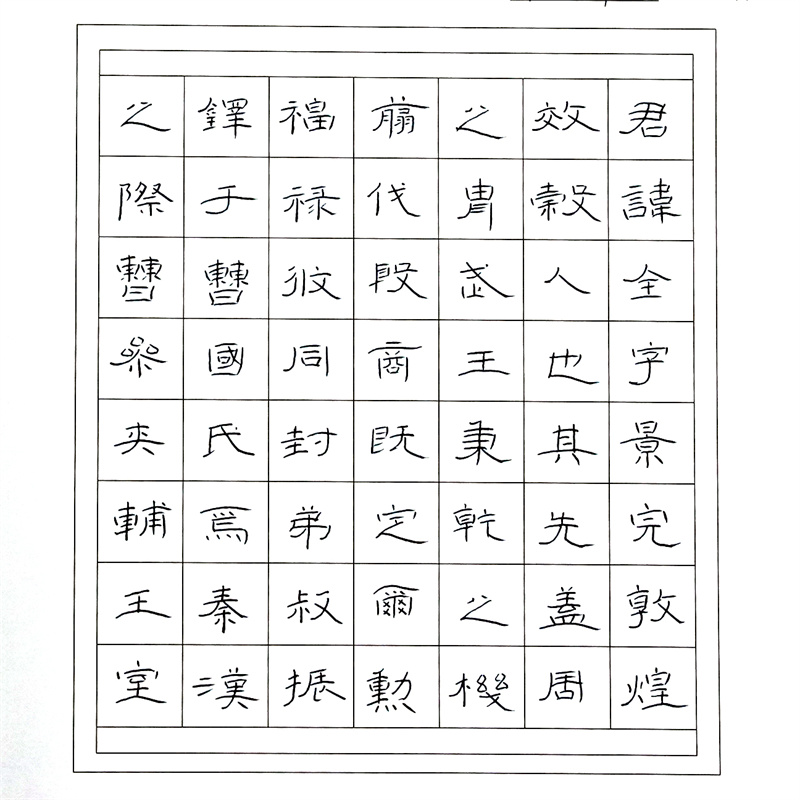 君諱全字景完敦煌
效穀人也其先盖周
之胄武王秉乾之機
翦伐殷商既定爾勳
福禄攸同封弟叔振
鐸于曹國氏焉秦漢
之際曹參夾輔王室